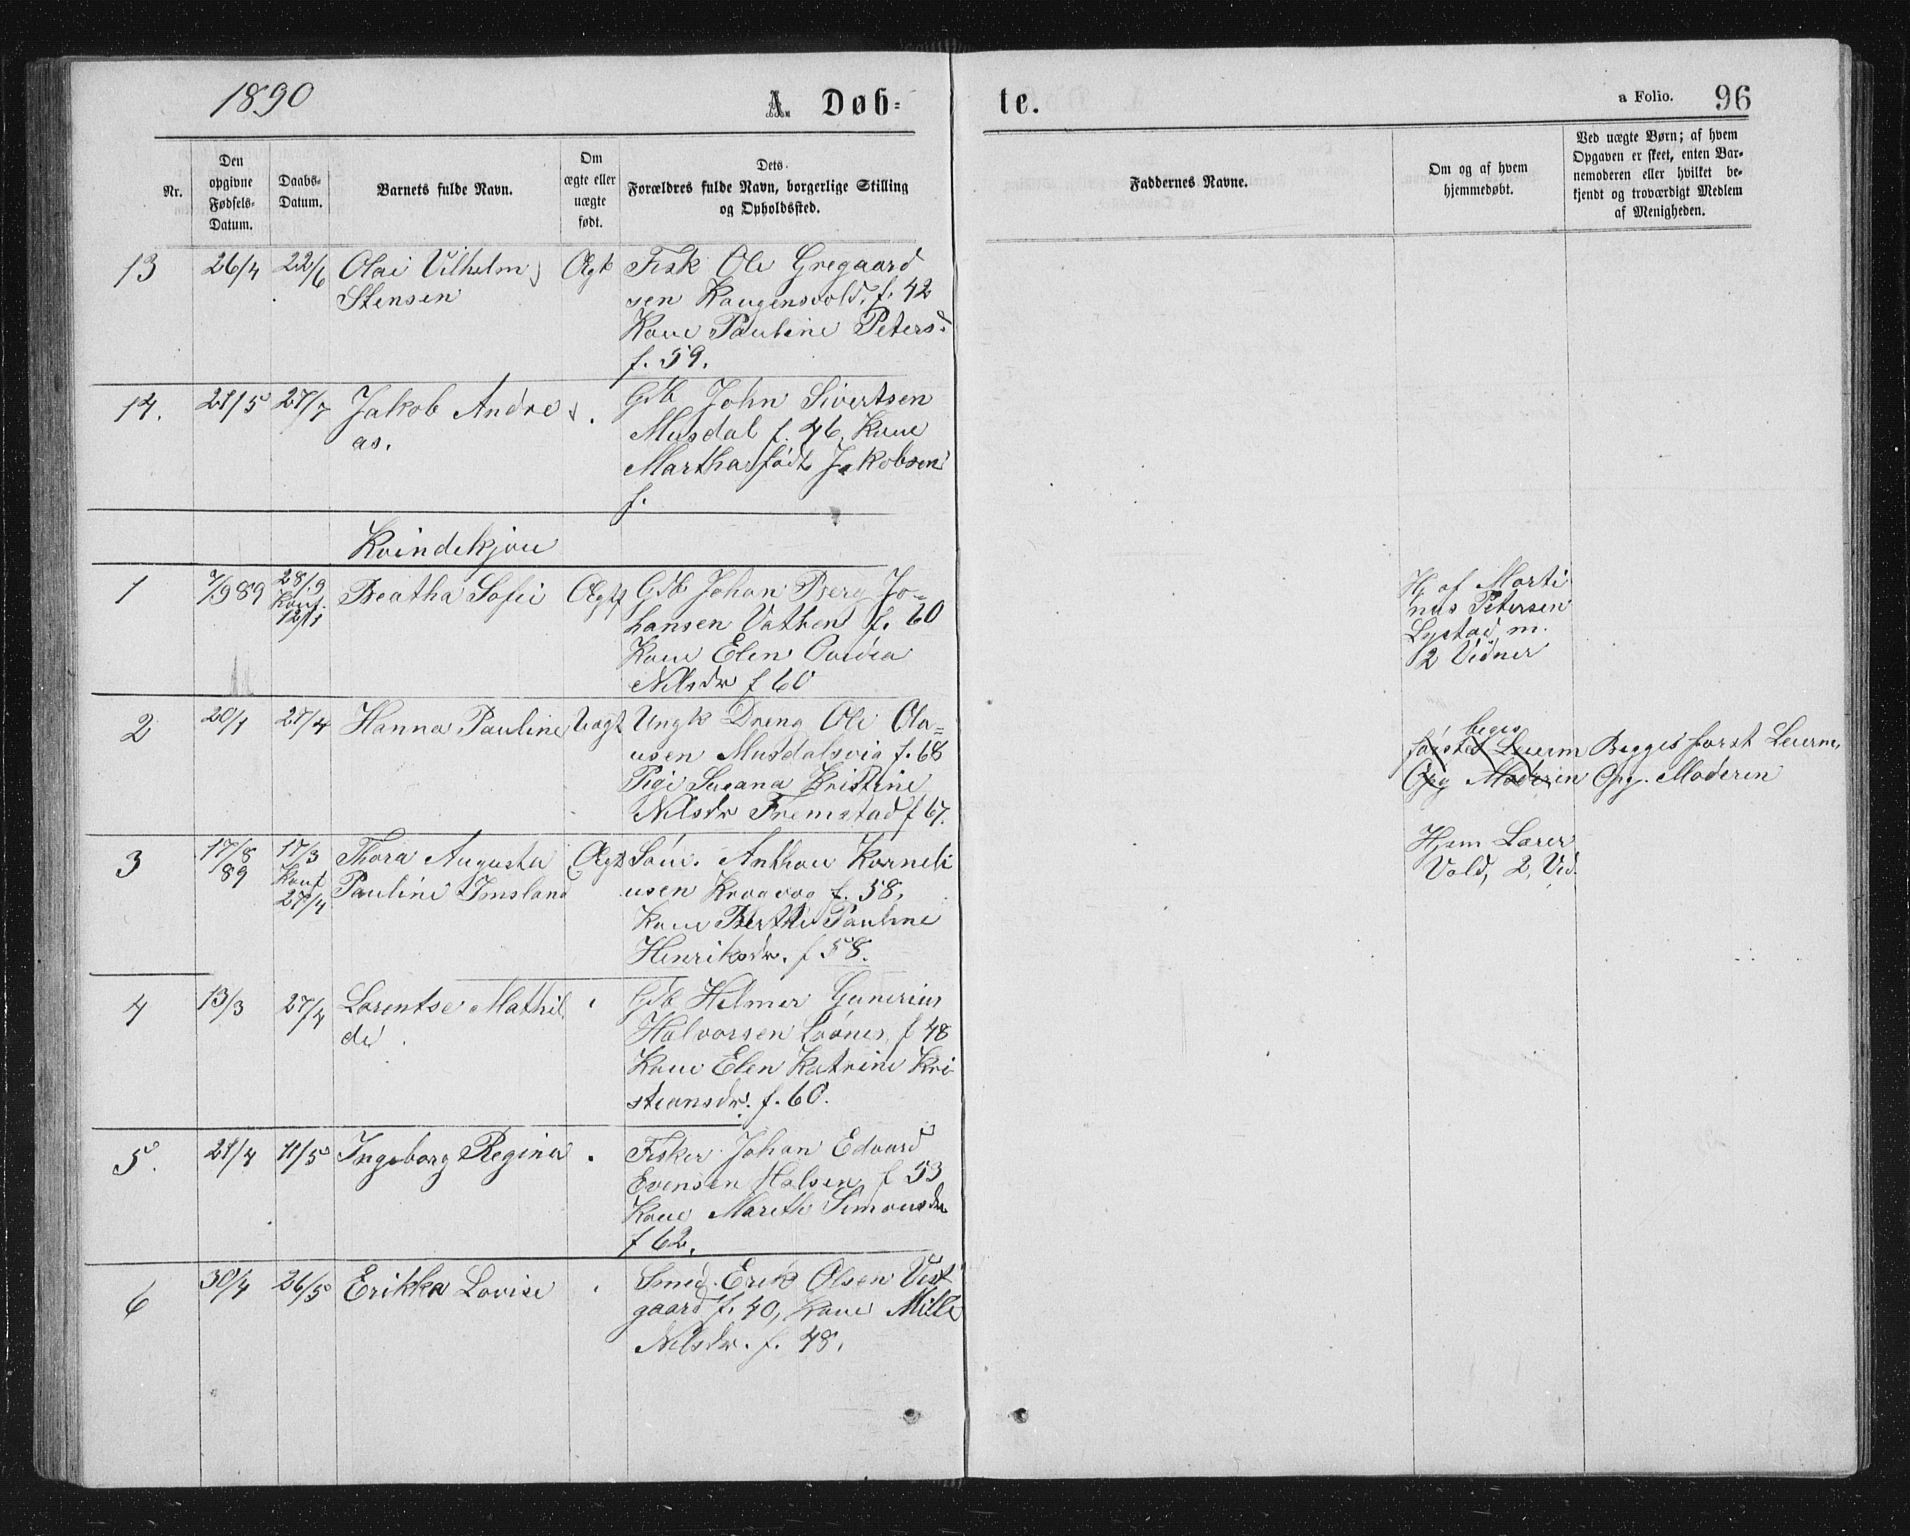 1890
A. Døb-
te.
a Folio.
96
Nr.
Den opgivne Fødsels-Datum.
Daabs-Datum.
Barnets fulde Navn.
Om ægte eller uægte født.
Dets Forældres fulde Navn, borgerlige Stilling og Opholdssted.
Faddernes Navne.
Om og af hvem hjemmedøbt.
Ved uægte Børn; af hvem Opgaven er skeet, enten Barnemoderen eller hvilket bekjendt og troværdigt Medlem af Menigheden.
13 26/4 22/6 Olai Vilhelm Ægt Fisk Ole Gregaard
Stensen sen f. 42
Kone Pauline Petersd.
f. 59.
14. 21/5 27/7 Jakob Andre . Gdb John Sivertsen
as. Musdal f. 46, Kone
Martha født Jakobsen
f.
Kvindekjøn
1 7/9 89 28/9 Beatha Sofie Ægte Gdb Johan Berg Jo-
Konf. 12/1 hansen Vathen f. 60
Kone Elen Ovidea
Nilsdr f 60
H. af Marti
nus Petersen
Lystad m.
2 Vidner
2 20/1 27/4 Hanna Pauline Uægt Ungk Dreng Ole Ola-
usen Musdalsvig f. 68
Pige Susana Kristine
Nilsdr Fremstad f 67.
beges
første Leierm Begges først Leierm.
Opg Moderen Opg. Moderen
3 17/8 89 17/3 Thora Augusta Ægte Søm. Anthon Korneli
Konf 27/4 Pauline Imsland usen Kragvag f. 58,
Kone Berthe Pauline
Henriksdr. f 58.
Hjem Lærer
Vold, 2 Vid.
4 13/3 27/4 Lorentse Mathil , Gdb Helmer Gunerius
de Halvorsen f 48
Kone Elen Katrine Kri
stiansdr. f. 60.
5. 21/4 11/5 Ingeborg Regine . Fisker Johan Edvard
Evensen Halsen f 53
Kone Marith Simonsdr
f 62.
6 30/4 26/5 Erikka Lovise , Smed Erik Olsen Vest
gaard f. 40, Kone Mille
Nilsdr. f. 48.